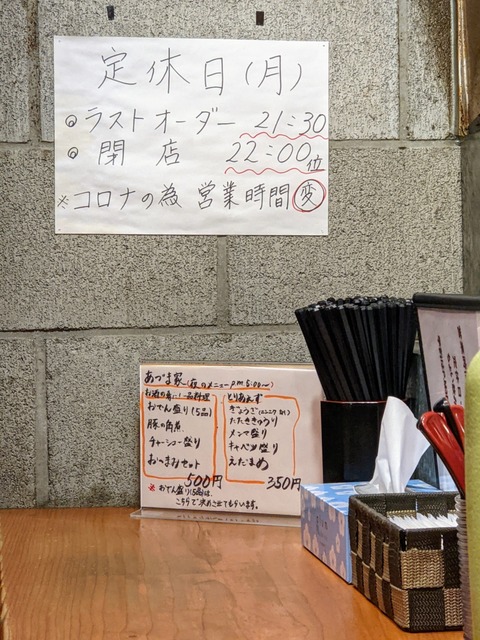 定休日(月)
◎ラストオーダー 21:30
◎閉店 22:00位
※コロナの為 営業時間変
あづま家(夜のメニュー P.M 5:00〜)
おでん盛り(5品)
豚の角煮
チャーシュー盛り
おつまみセット
500円
とりあえず
ぎょうざ(ニンニクなし)
たたききゅうり
メンマ盛り
キャベツ盛り
えだまめ
350円
※おでん盛り(5品)は、
こちらで決めさせてもらいます。